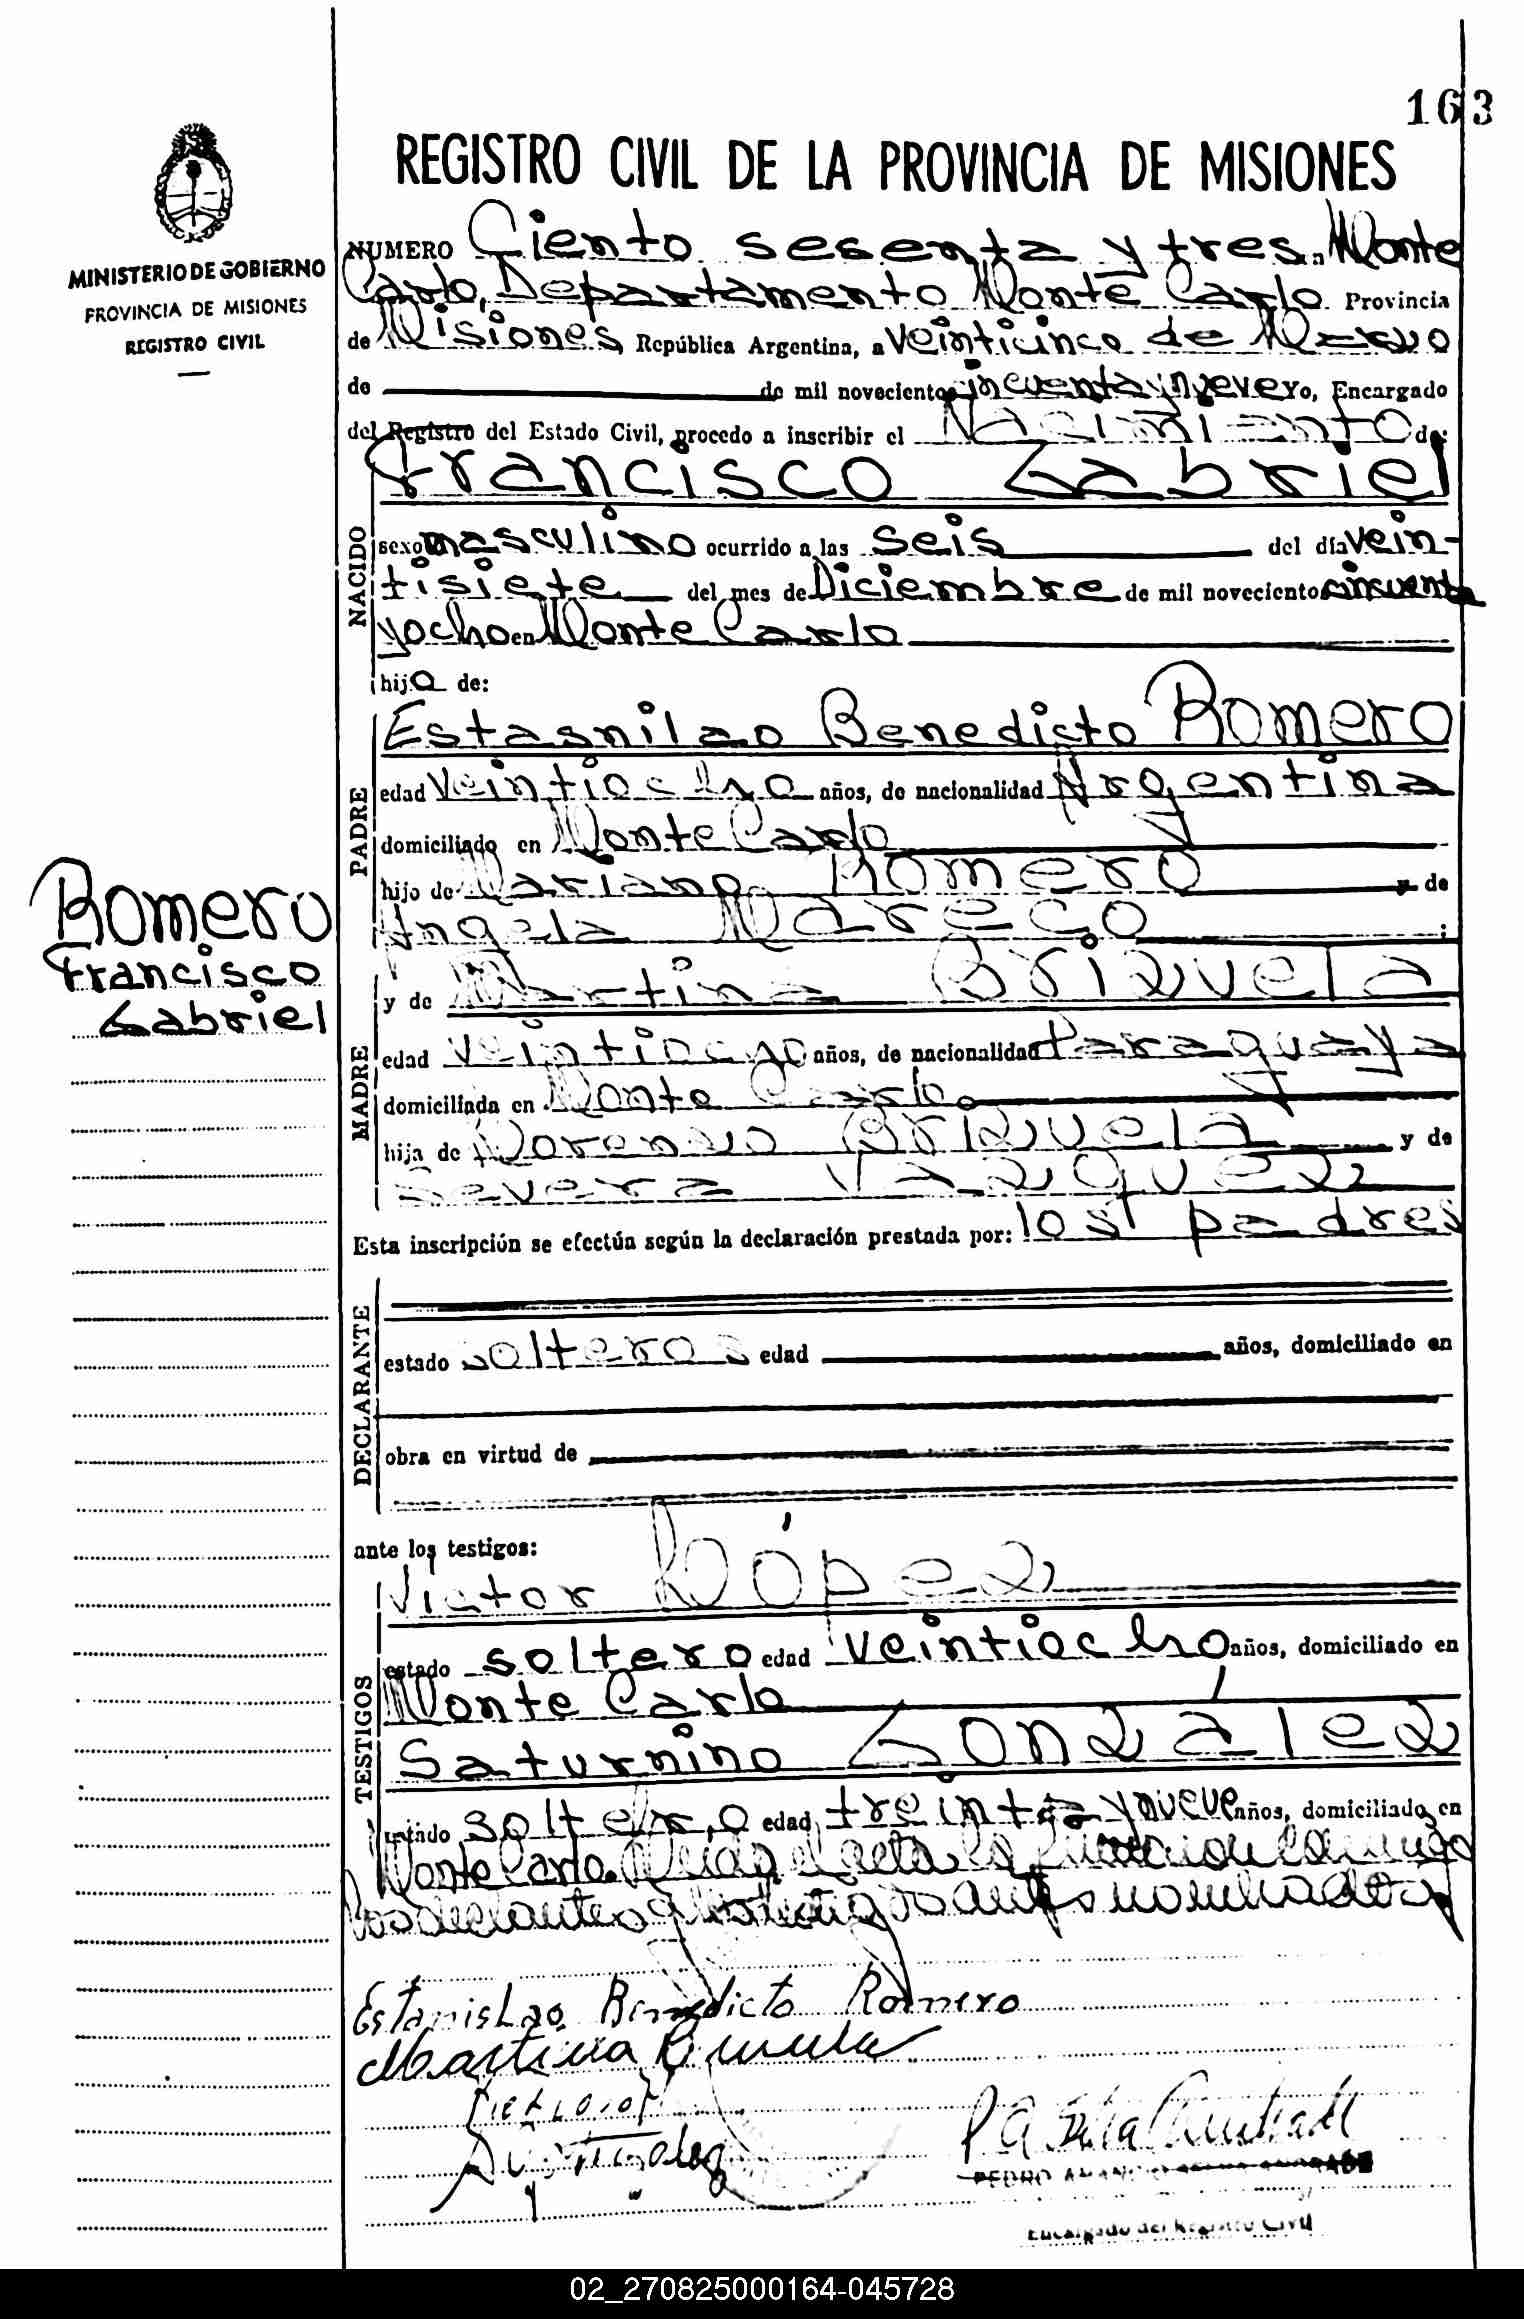 163
REGISTRO CIVIL DE LA PROVINCIA DE MISIONES
MINISTERIO DE GOBIERNO
PROVINCIA DE MISIONES
REGISTRO CIVIL
NUMERO Ciento sesenta y tres. Monte
Carlo, Departamento Monte Carlo Provincia
de Misiones, República Argentina, a veinticinco de Marzo
de de mil novecientos cincuenta y nueve Yo, Encargado
del Registro del Estado Civil, procedo a inscribir el Nacimiento de:
Francisco Gabriel
NACIDO
sexo masculino ocurrido a las seis del día vein-
tisiete del mes de Diciembre de mil novecientos cincuenta
y ocho en Monte Carlo
hijo de:
PADRE
Estasnilao Benedicto Romero
edad veintiocho años, de nacionalidad Argentina
domiciliado en Monte Carlo
hijo de Mariano Romero y de
Angela Mareco;
Romero
Francisco
Gabriel
MADRE
y de Martina Brizuela
edad veintiocho años, de nacionalidad Paraguaya
domiciliada en Monte Carlo
hija de Lorenzo Brizuela y de
Severa Vazquez
Esta inscripción se efectúa según la declaración prestada por: los padres
DECLARANTE
estado solteros edad años, domiciliado en
obra en virtud de
ante los testigos:
TESTIGOS
Victor López
estado soltero edad veintiocho años, domiciliado en
Monte Carlo
Saturnino González
estado soltero edad treinta y nueve años, domiciliado en
Monte Carlo. Leida el acta la firmaron conmigo
los declarantes y los testigos antes nombrados
Estanislao Benedicto Romero
Martina Brizuela
Encargado del Registro Civil
02_270825000164-045728